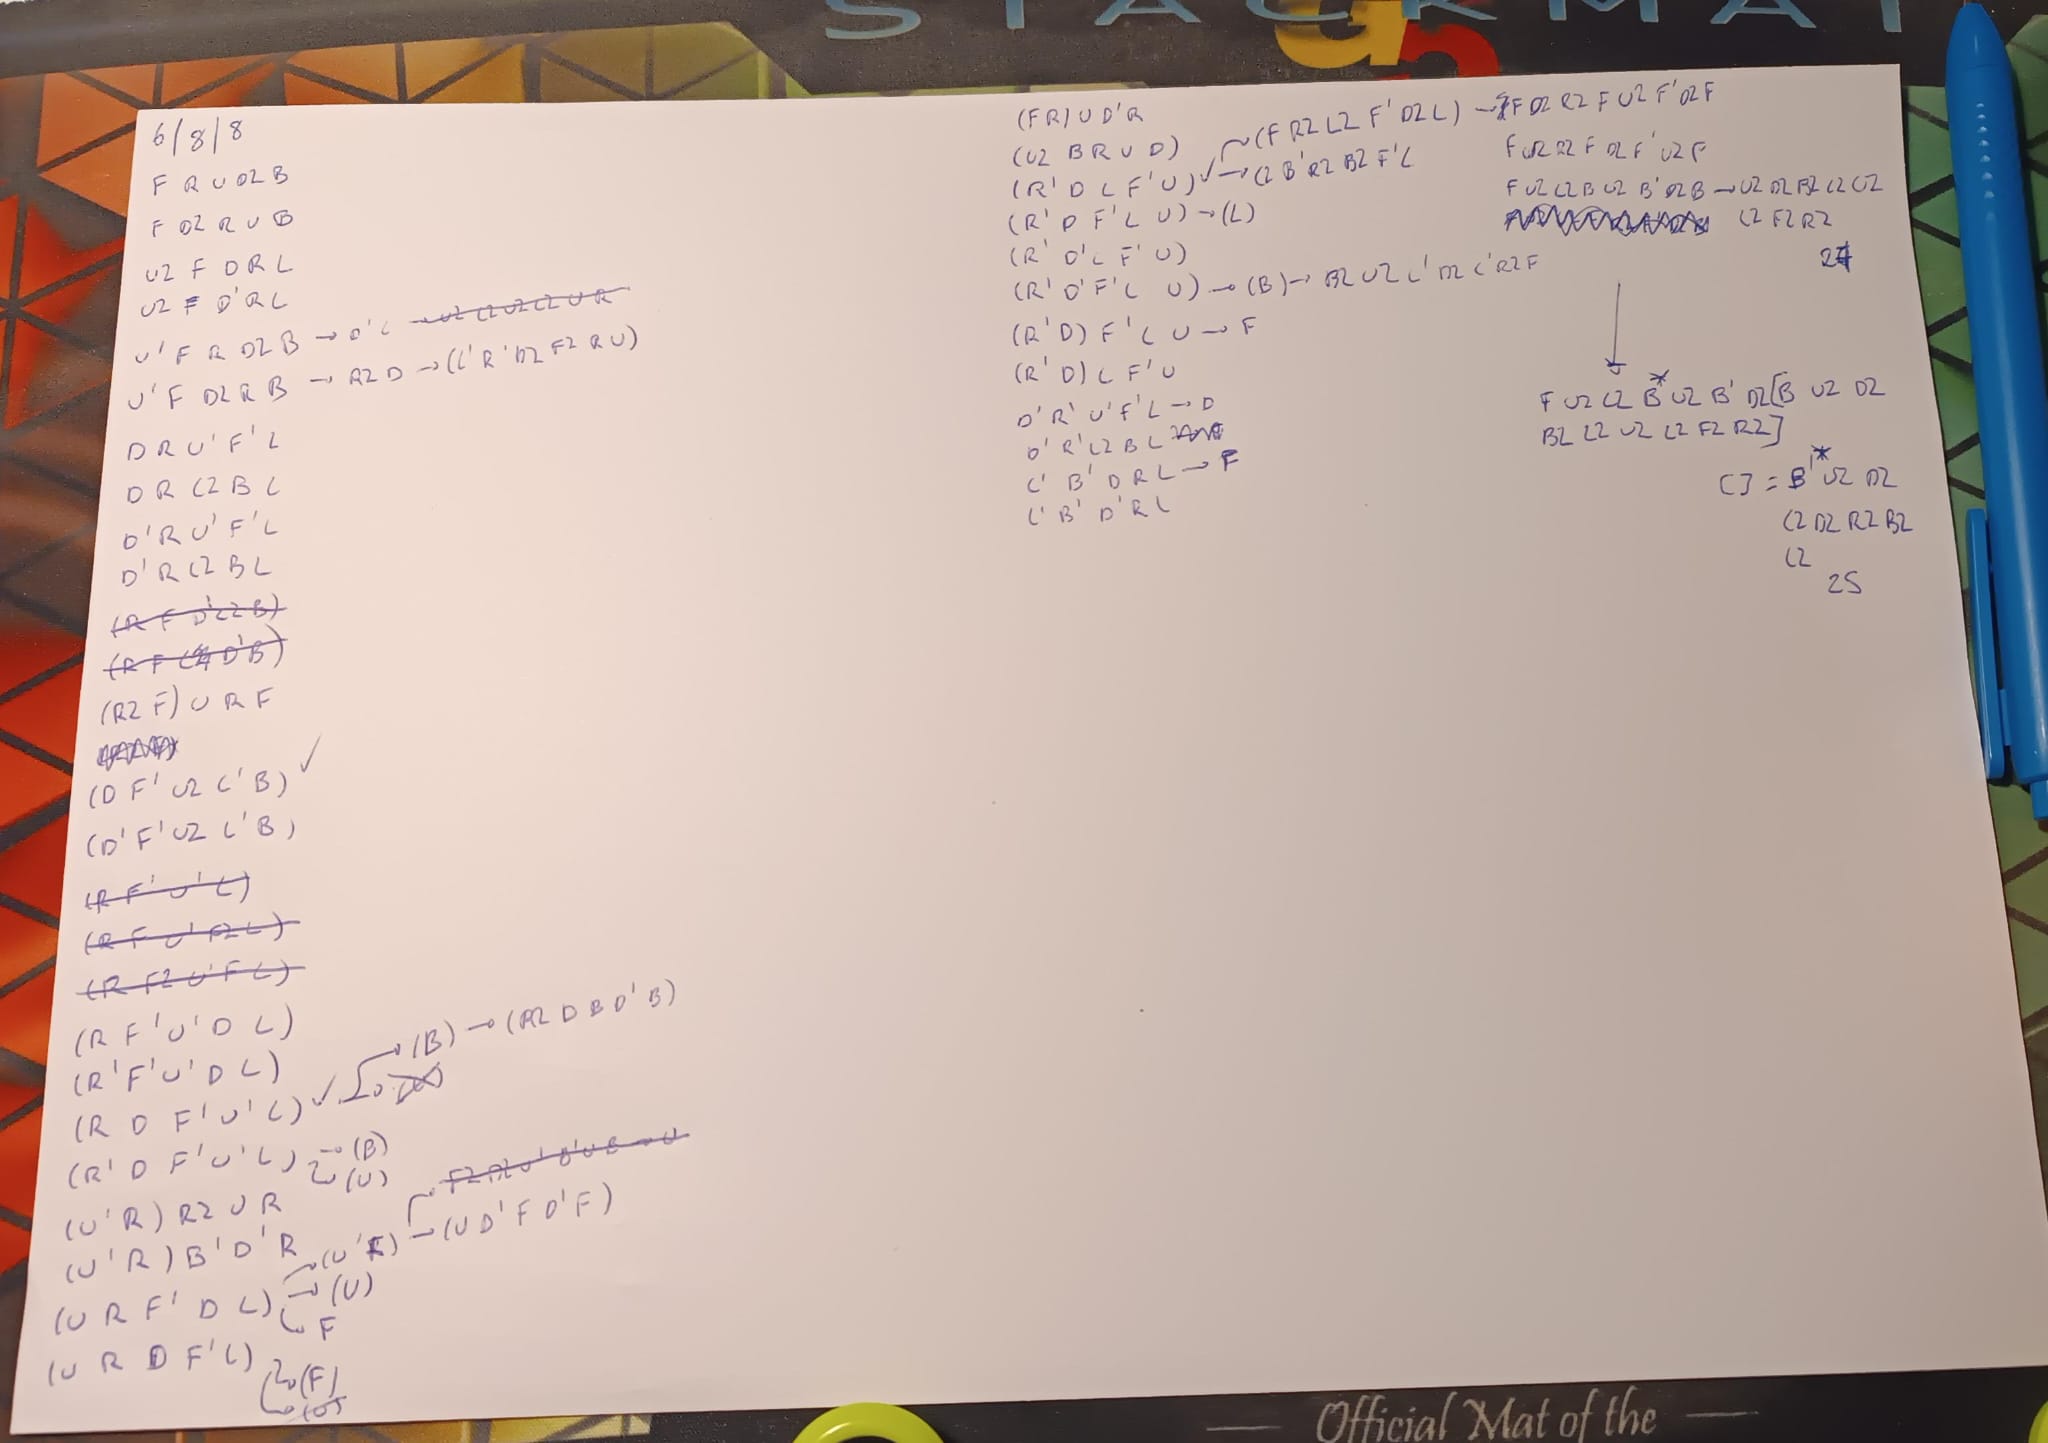 STACKMAT
G5
6/8/8
F R U D2 B
F D2 R U B
U2 F D R L
U2 F D' R L
U' F R D2 B → D' L → U2 L2 U2 L2 U R
U' F D2 R B → R2 D → (L' R' D2 F2 R U)
D R U' F' L
D R L2 B L
D' R U' F' L
D' R L2 B L
(R F D' L2 B)
(R F L2 D' B)
(R2 F) U R F
(D F' U2 L' B) ✓
(D' F' U2 L' B)
(R F' U' L)
(R F U' F2 L)
(R F2 U' F L)
(R F' U' D L)
(R' F' U' D L)
(R D F' U' L) ✓ → (B) → (R2 D B D' B)
(R' D F' U' L) → (B)
→ (U)
(U' R) R2 U R
(U' R) B' D' R
(U R F' D L) → (U' F) → (U D' F D' F)
→ (U)
→ F
(U R D F' L) → (F)
(F R) U D' R
(U2 B R U D)
(R' D L F' U) ✓ → (F R2 L2 F' D2 L) → F D2 R2 F U2 F' D2 F
→ L2 B' R2 B2 F' L
(R' D F' L U) → (L)
(R' D' L F' U)
(R' D' F' L U) → (B) → B2 U2 L' D2 L' R2 F
(R' D) F' L U → F
(R' D) L F' U
D' R' U' F' L → D
D' R' L2 B L
L' B' D R L → F
L' B' D' R L
F U2 R2 F D2 F' U2 F
F U2 L2 B U2 B' D2 B → U2 D2 B2 L2 U2
L2 F2 R2
F U2 L2 B* U2 B' D2 [B U2 D2
B2 L2 U2 L2 F2 R2]
[] = B'* U2 D2
L2 D2 R2 B2
L2
25
Official Mat of the